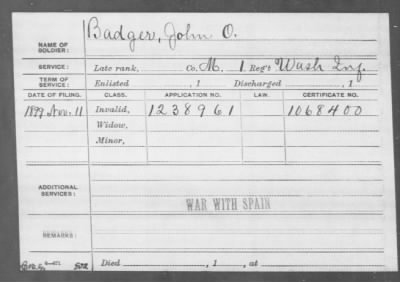 NAME OF SOLDIER: Badger, John O.
SERVICE: Late rank, Co. M. 1 Reg't Wash Inf.
TERM OF SERVICE: Enlisted , 1 Discharged , 1
DATE OF FILING. CLASS. APPLICATION NO. LAW. CERTIFICATE NO.
1899 Nov. 11 Invalid, 1238961 1068400
Widow,
Minor,
ADDITIONAL SERVICES:
WAR WITH SPAIN
REMARKS:
Died , 1 , at